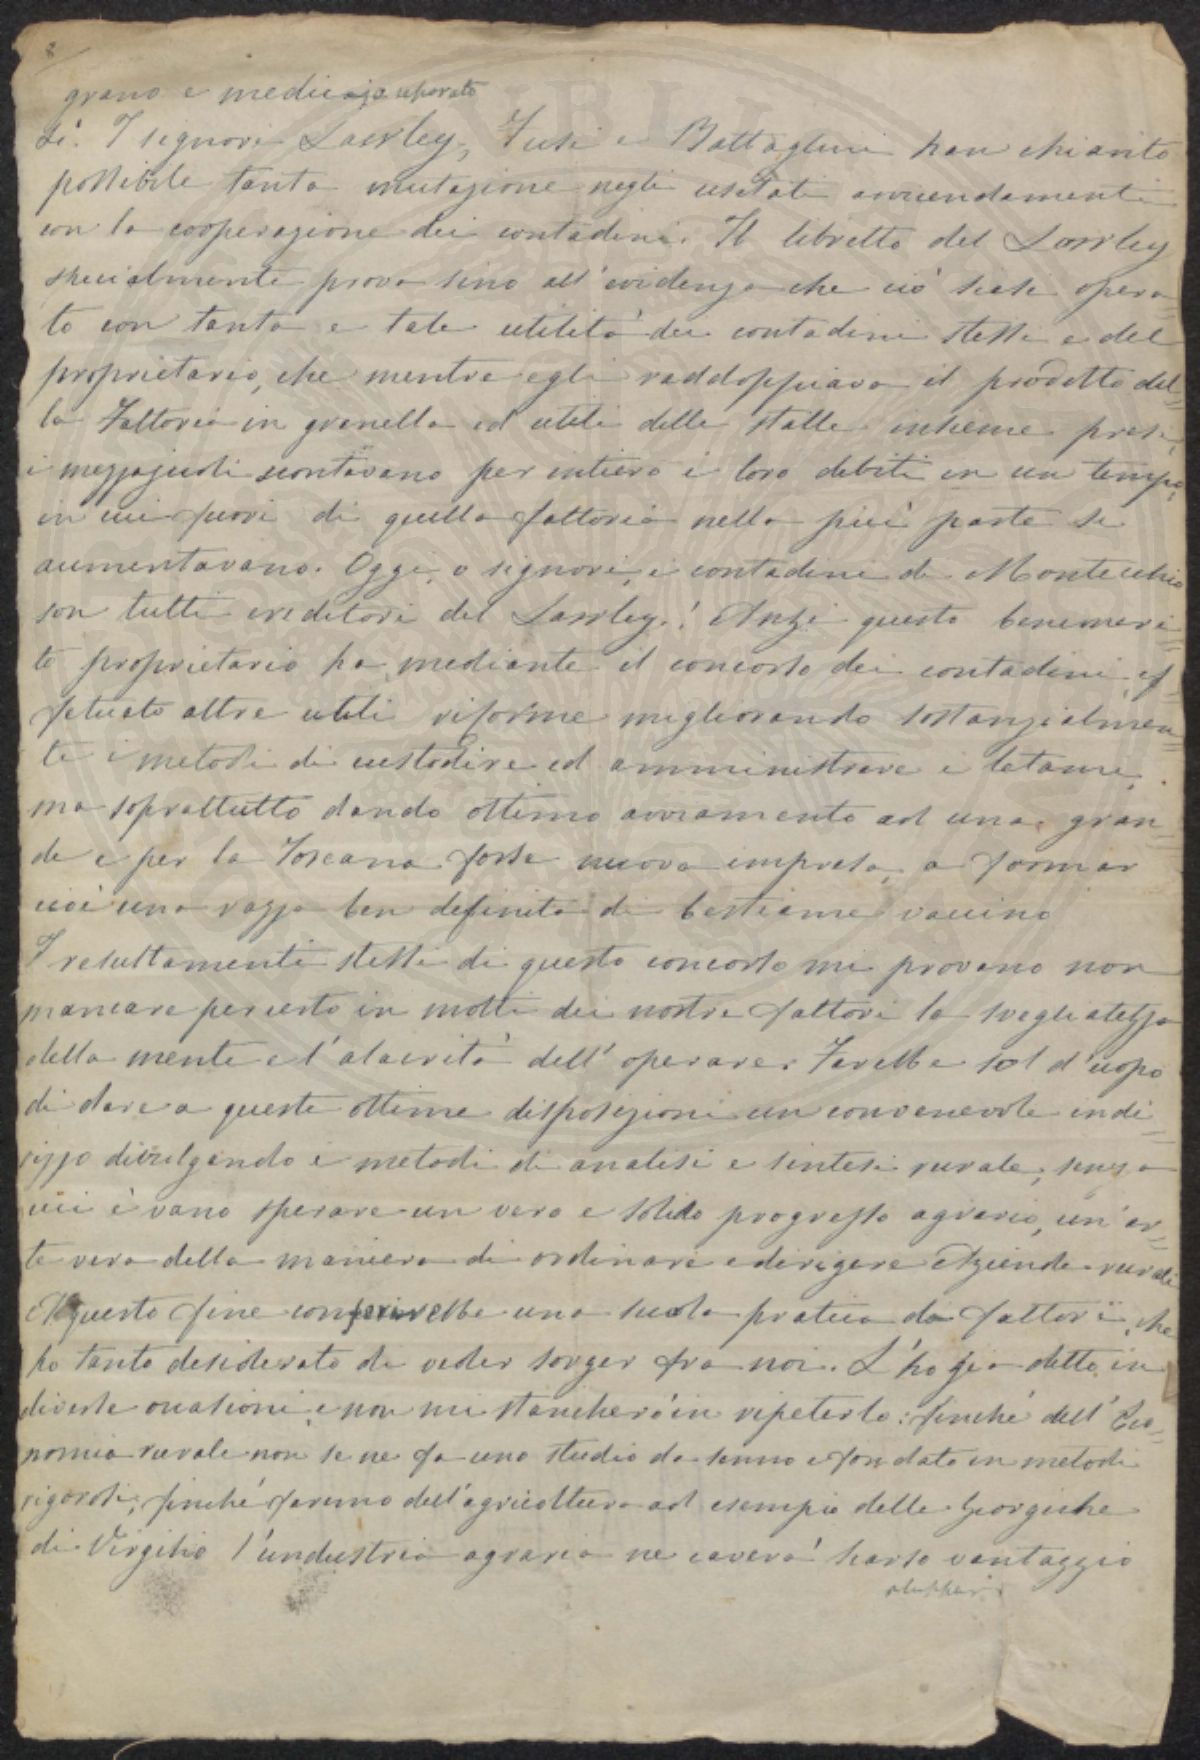 8
grano e medicajo separato
sì. I signori Lawley, Fusi e Battaglini han chiarito
possibile tanta mutazione negli usitati avvicendamenti
con la cooperazione dei contadini. Il libretto del Lawley
specialmente prova sino all'evidenza che ciò siasi opera
to con tanta e tale utilità dei contadini stessi e del
proprietario, che mentre egli raddoppiava il prodotto del=
la Fattoria in granella ed utili delle stalle insieme presi,
i mezzajuoli scontavano per intiero i loro debiti in un tempo,
in cui fuori di quella fattoria nella più parte si
aumentavano. Oggi, o signori, i contadini di Montecchio
son tutti creditori del Lawley! Anzi questo benemeri=
to proprietario ha, mediante il concorso dei contadini, ef=
fetuato altre utili riforme migliorando sostanzialmen=
te i metodi di custodire ed amministrare i letami,
ma soprattutto dando ottimo avviamento ad una gran=
de e per la Toscana forse nuova impresa, a formar
cioè una razza ben definita di bestiame vaccino
I resultamenti stessi di questo concorso mi provano non
mancare per certo in molti dei nostri fattori la svegliatezza
della mente e l'alacrità dell'operare. Farebbe sol d'uopo
di dare a queste ottime disposizioni un convenevole indi=
rizzo divulgando i metodi di analisi e sintesi rurale, senza
cui è vano sperare un vero e solido progresso agrario, un'ar=
te vera della maniera di ordinare e dirigere Aziende rurali
A questo fine conferirebbe una scuola pratica da fattori, che
ho tanto desiderato di veder sorger fra noi. L'ho già detto in
diverse occasioni, e non mi stancherò in ripeterlo: finché dell'Eco=
nomia rurale non se ne fa uno studio da senno e fondato in metodi
rigorosi, finché faremo dell'agricoltura ad esempio delle Georgiche
di Virgilio l'industria agraria ne caverà scarso vantaggio